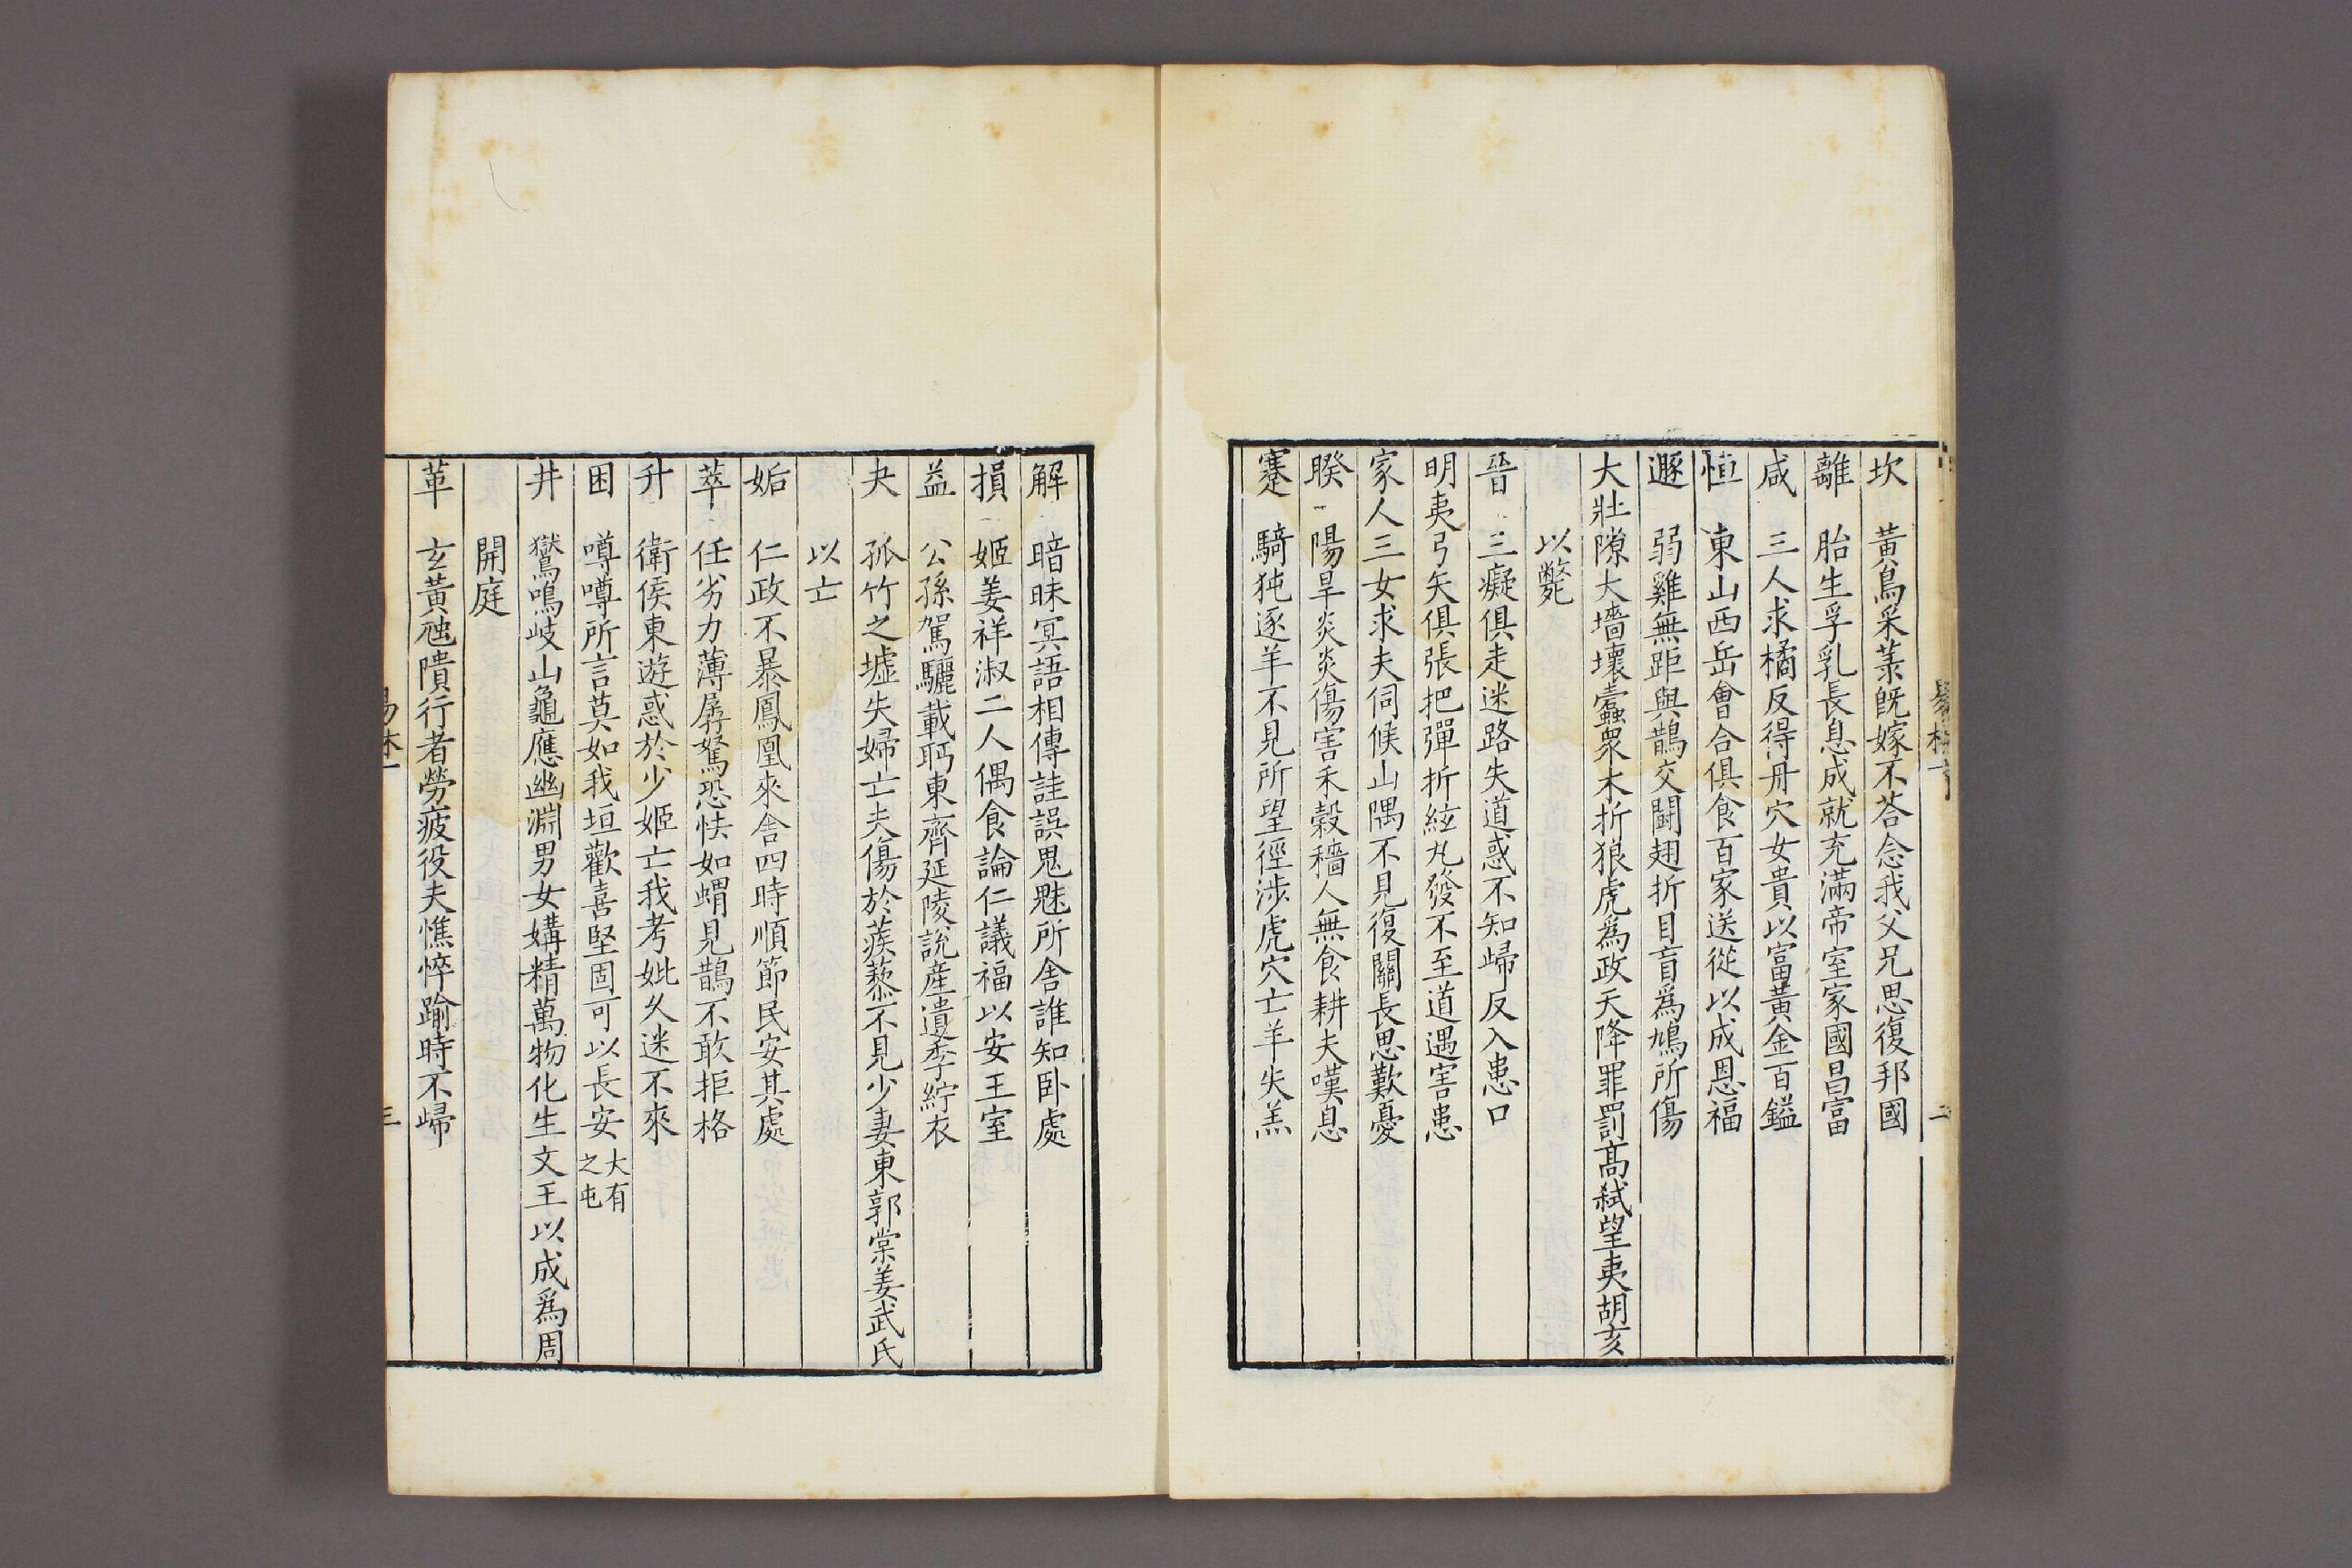 坎 黃鳥采菉旣嫁不荅念我父兄思復邦國
離 胎生孚乳長息成就充滿帝室家國昌富
咸 三人求橘反得丹穴女貴以富黃金百鎰
恒 東山西岳會合俱食百家送從以成恩福
遯 弱雞無距與鵲交鬪翅折目盲爲鳩所傷
大壯隙大墻壞蠹衆木折狼虎爲政天降罪罰髙弑望夷胡亥
以斃
晉 三癡俱走迷路失道惑不知歸反入患口
明夷弓矢俱張把彈折絃丸發不至道遇害患
家人三女求夫伺候山隅不見復關長思歎憂
睽 陽旱炎炎傷害禾穀穡人無食耕夫嘆息
蹇 騎㹠逐羊不見所望徑涉虎穴亡羊失羔
解 暗昧冥語相傳詿誤鬼魅所舍誰知卧處
損 姬姜祥淑二人偶食論仁議福以安王室
益 公孫駕驪載聘東齊延陵說產遺季紵衣
夬 孤竹之墟失婦亡夫傷於蒺藜不見少妻東郭棠姜武氏
以亡
姤 仁政不暴鳳凰來舍四時順節民安其處
萃 任劣力薄孱駑恐怯如蝟見鵲不敢拒格
升 衛侯東遊惑於少姬亡我考妣久迷不來
困 噂噂所言莫如我垣歡喜堅固可以長安大有之屯
井 鸑鳴岐山龜應幽淵男女媾精萬物化生文王以成爲周
開庭
革 玄黃虺隤行者勞疲役夫憔悴踰時不歸
三